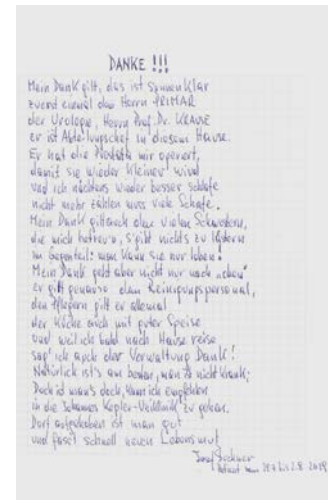 DANKE !!!
Mein Dank gilt, das ist sonnenklar
zuerst einmal dem Herrn PRIMAR
der Urologie, Herrn Prof. Dr. KRAUSE
er ist Abteilungschef in diesem Hause.
Er hat die Prostata mir operiert,
damit sie wieder kleiner wird
und ich nächtens wieder besser schlafe
nicht mehr zählen muss viele Schafe.
Mein Dank gilt auch den vielen Schwestern,
die mich betreu'n, s'gibt nichts zu lästern
im Gegenteil: man kann sie nur loben!
Mein Dank geht aber nicht nur nach "oben"
er gilt genauso dem Reinigungspersonal,
den Pflegern gilt er allemal
der Küche auch mit guter Speise
und weil ich bald nach Hause reise
sag' ich auch der Verwaltung Dank!
Natürlich ist's am besten, man is nicht krank;
Doch ist man's doch, kann ich empfehlen
in die Johannes Kepler-Uniklinik zu gehen.
Dort aufgehoben ist man gut
und fasst schnell neuen Lebensmut
Josef